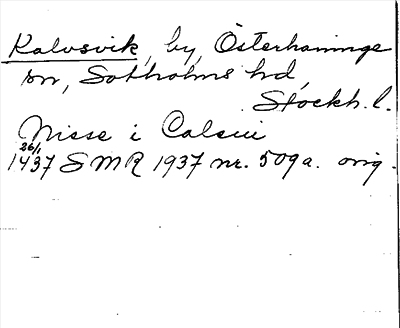 Kalvsvik, by, Österhaninge
sn, Sotholms hd,
Stockh. l.
Nisse i Calsui
26/1
1437 SMR 1937 nr. 509a. orig.